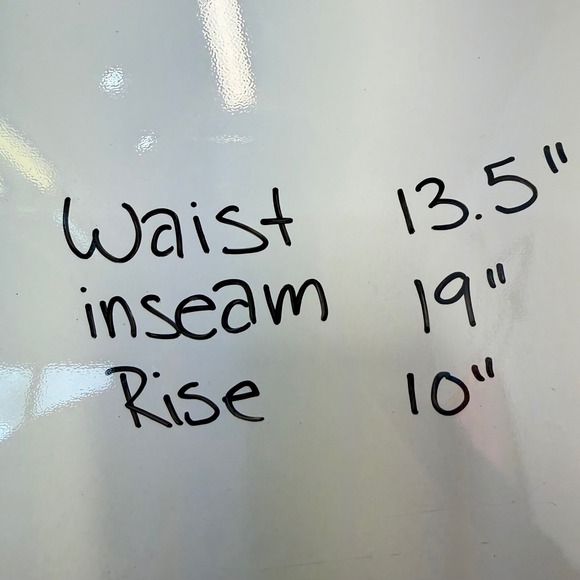 Waist 13.5"
inseam 19"
Rise 10"